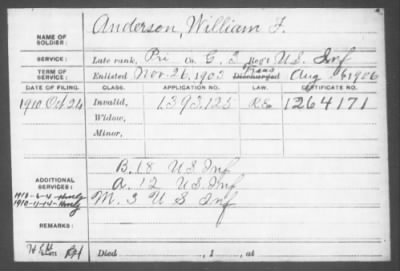 NAME OF SOLDIER: Anderson, William F.
SERVICE: Late rank, Pri Co. G, 3 Reg't U.S. Inf
TERM OF SERVICE: Enlisted Nov. 26, 1903 Trans Discharged Aug 6 1906
DATE OF FILING. CLASS. APPLICATION NO. LAW. CERTIFICATE NO.
1910 Oct 24 Invalid, 1395125 1264171
Widow,
Minor,
ADDITIONAL SERVICES: B. 18 U.S. Inf
A. 12 U.S. Inf
M. 3 U S Inf
REMARKS:
Died , 1 , at